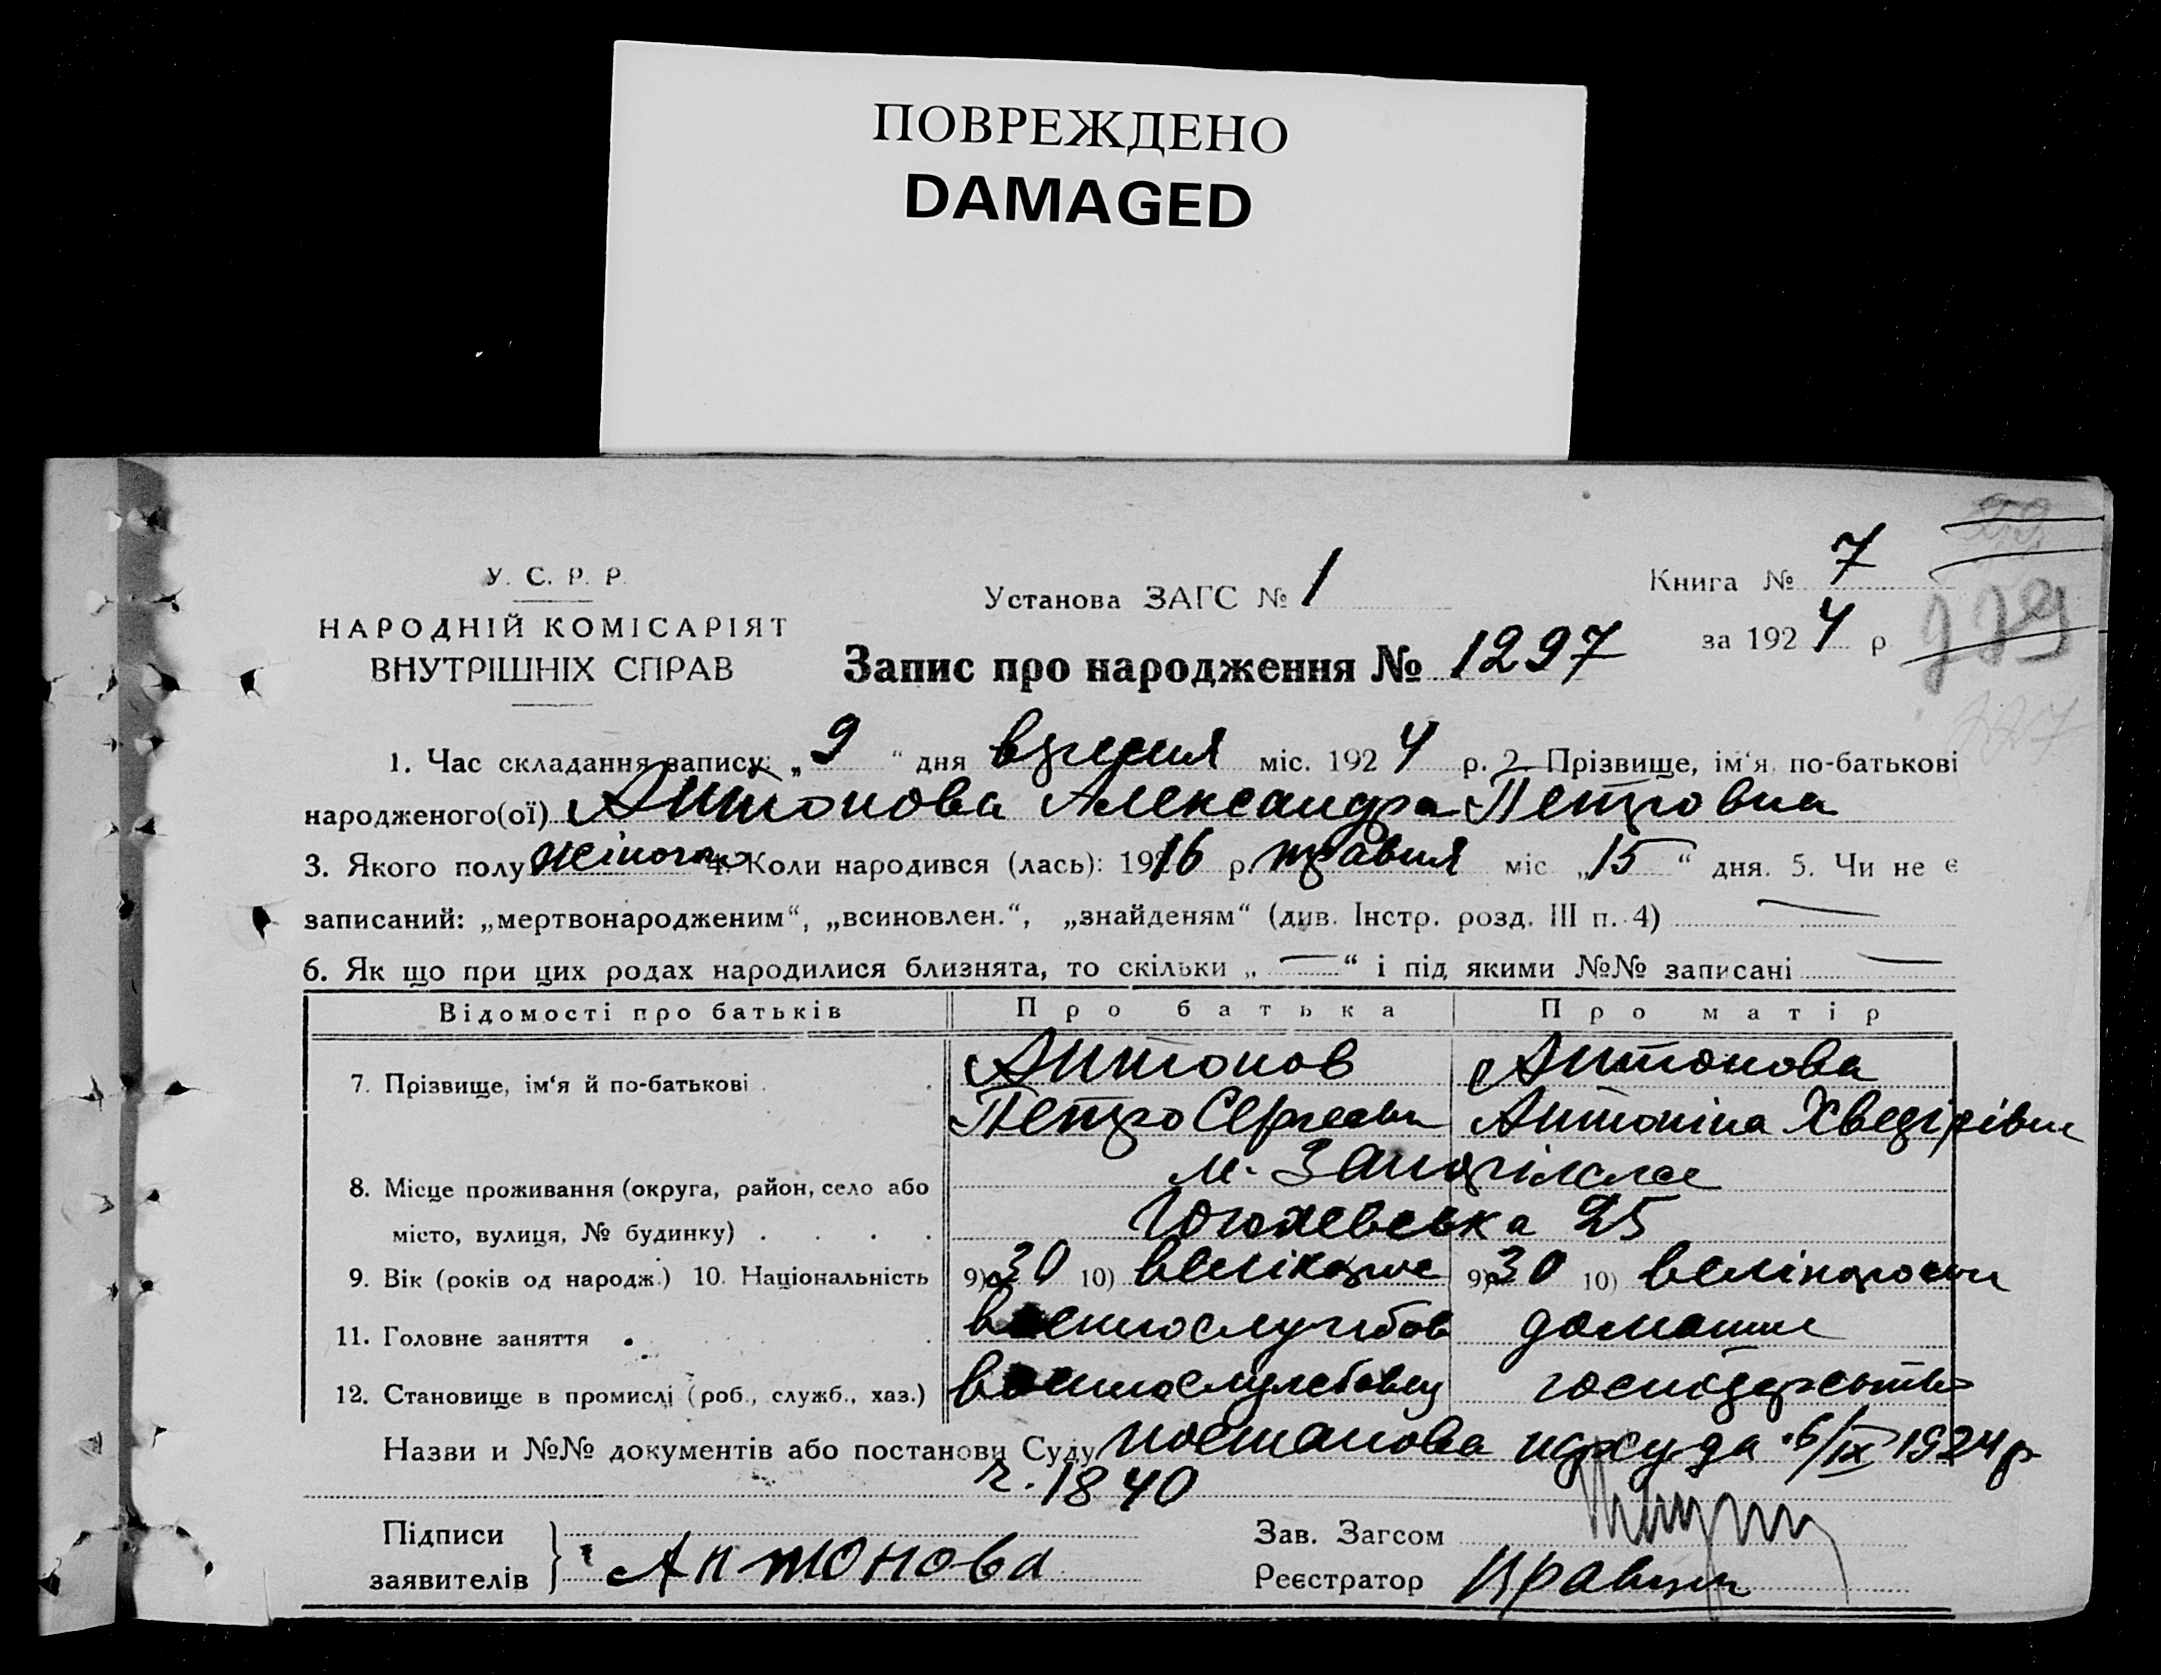 ПОВРЕЖДЕНО
DAMAGED
У. С. Р. Р.
НАРОДНІЙ КОМІСАРІЯТ
ВНУТРІШНІХ СПРАВ
Установа ЗАГС № 1
Книга № 7
за 1924 р
Запис про народження № 1297
1. Час складання запису: „9“ дня вересня міс. 1924 р. 2. Прізвище, ім‘я, по-батькові
народженого(ої) Антонова Александра Петровна
3. Якого полу жіночого 4. Коли народився (лась): 1916 р. травня міс „15“ дня. 5. Чи не є
записаний: „мертвонародженим“, „всиновлен.“, „знайденям“ (див. Інстр. розд. III п. 4) —
6. Як що при цих родах народилися близнята, то скільки „—“ і під якими №№ записані —
Відомості про батьків Про батька Про матір
7. Прізвище, ім‘я й по-батькові Антонов Антонова
Петро Сергеевич Антоніна Хведірівна
8. Місце проживання (округа, район, село або м. Запоріжжя
місто, вулиця, № будинку) Гоголевська 25
9. Вік (років од народж.) 10. Національність 9) 30 10) 9) 30 10)
11. Головне заняття домашнє
12. Становище в промислі (роб., служб., хаз.) господарство
Назви и №№ документів або постанови Суду постанова нарсуда 6/IX 1924 р
ч. 1840
Підписи
заявителів Антонова
Зав. Загсом
Реєстратор